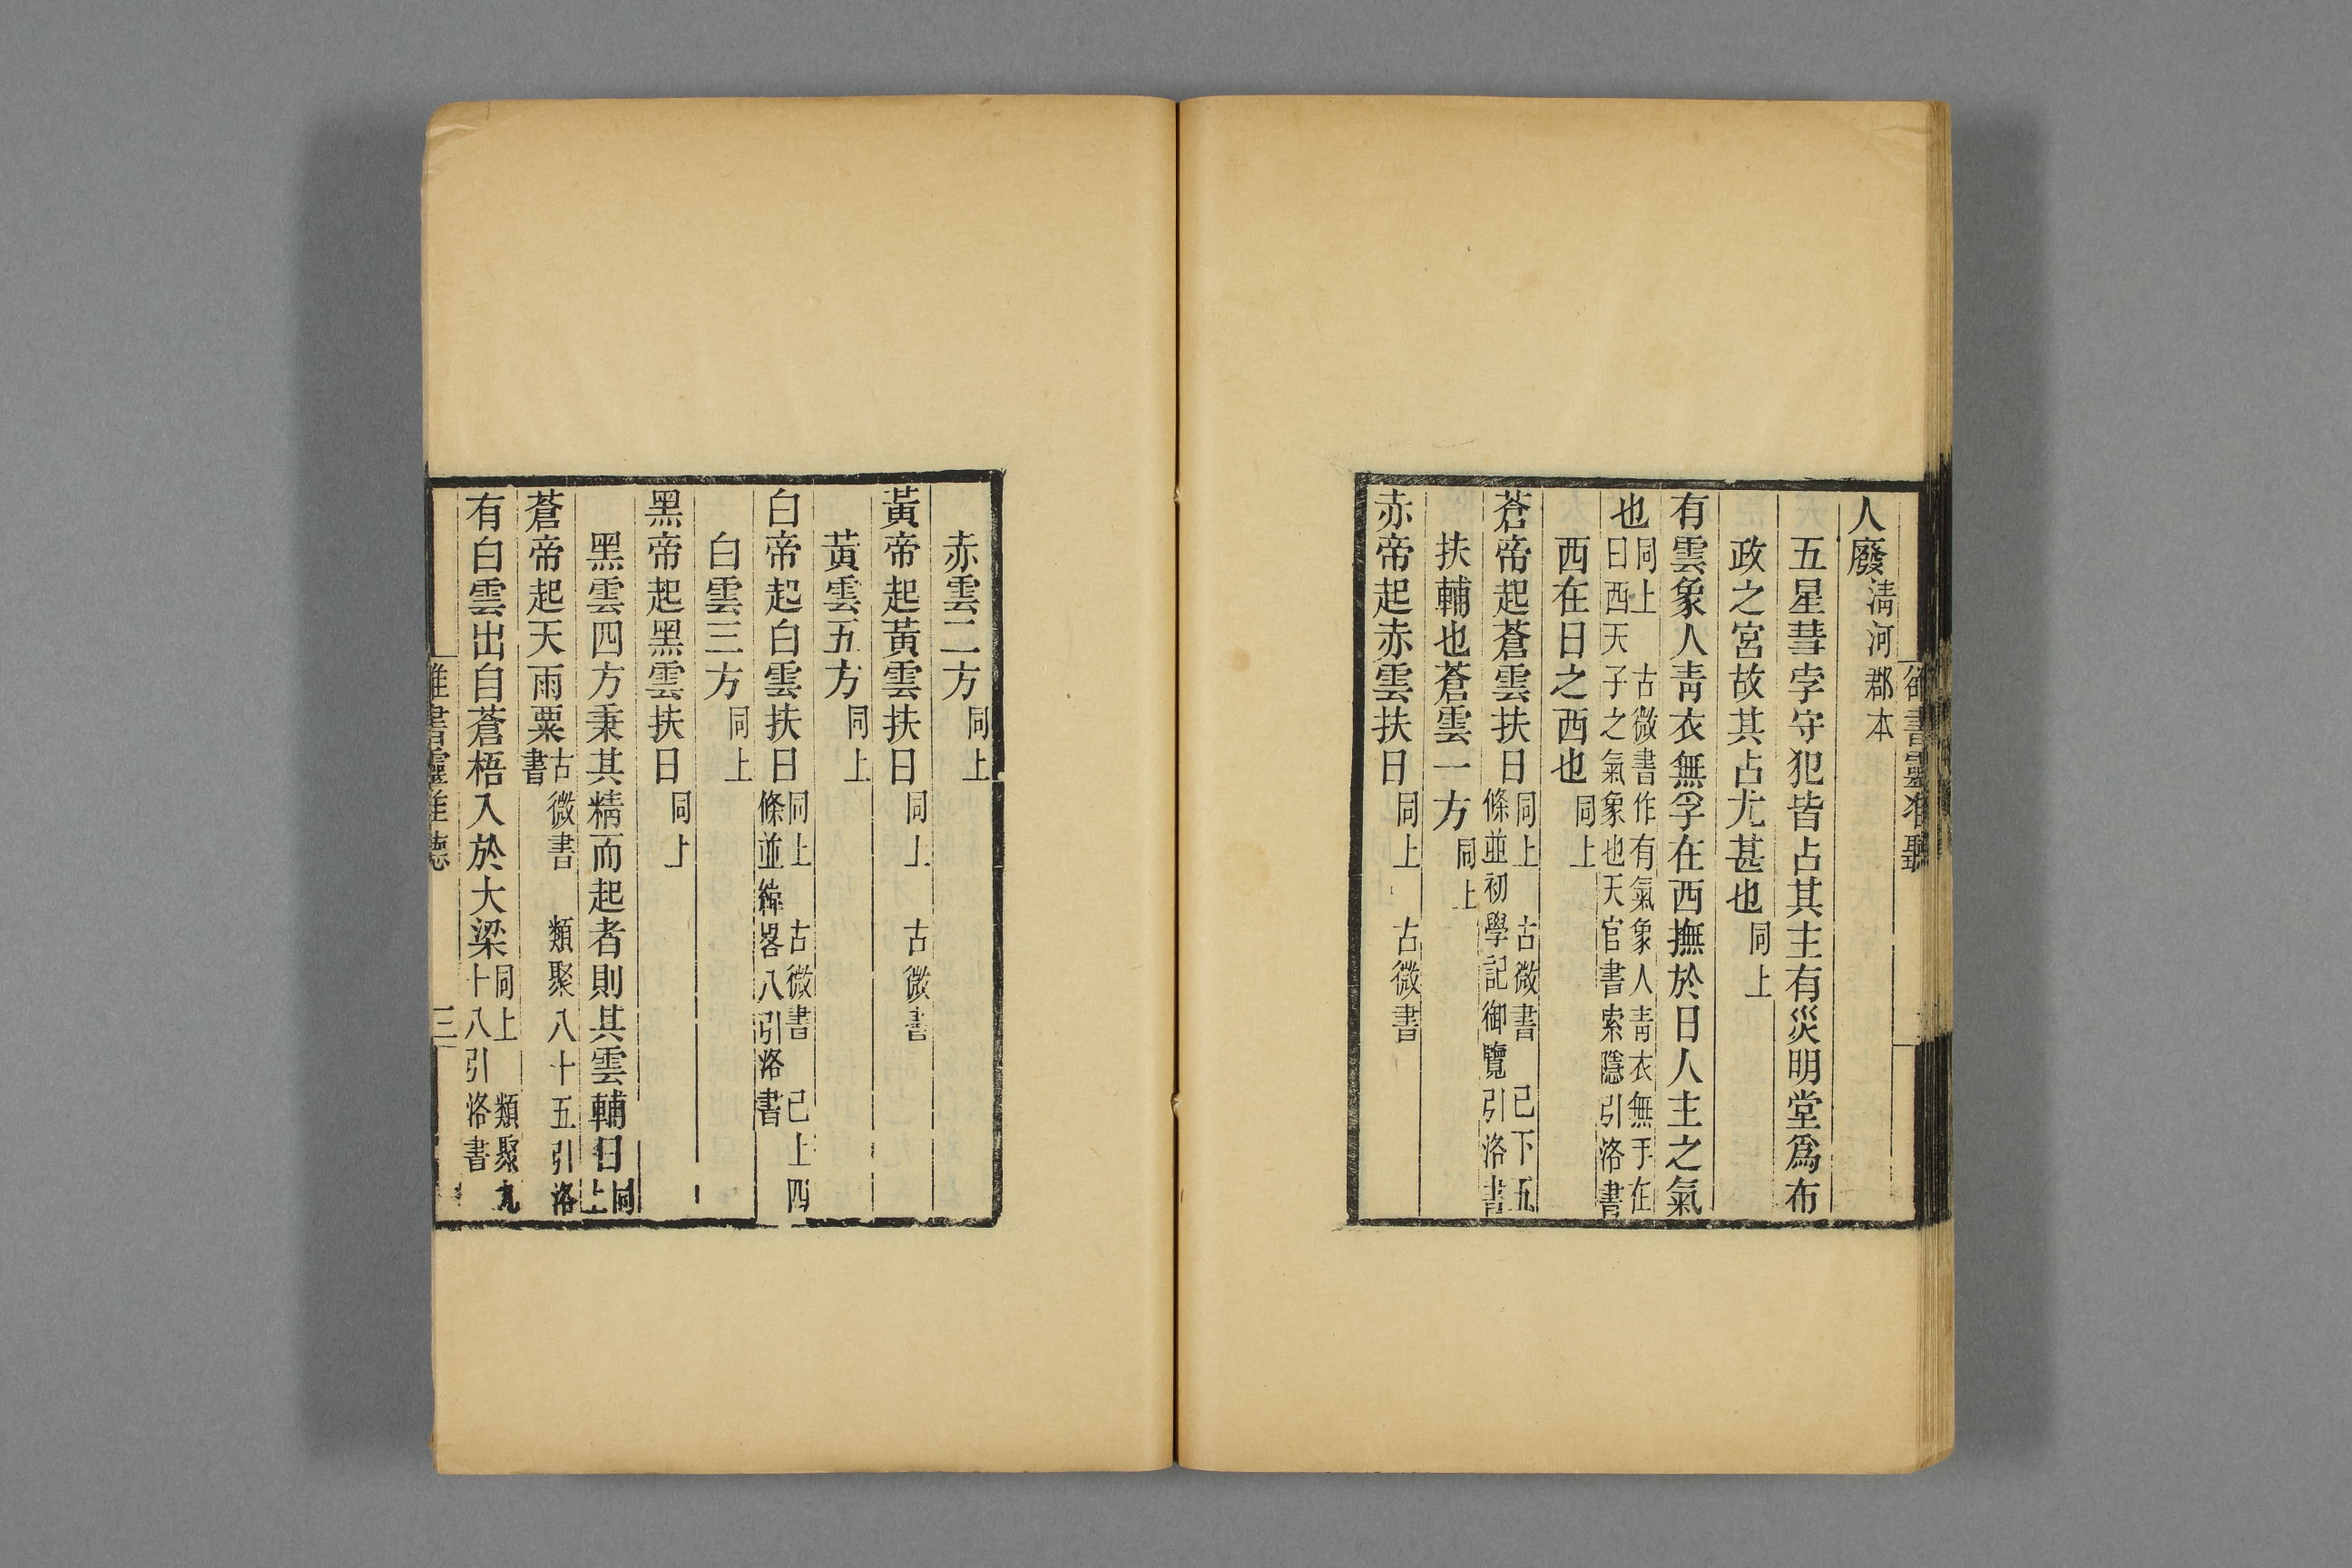 人廢清河郡本
五星彗孛守犯皆占其主有災明堂爲布
政之宮故其占尤甚也同上
有雲象人青衣無孚在西撫於日人主之氣
也同上 古微書作有氣象人青衣無手在
日西天子之氣象也天官書索隱引洛書
西在日之西也同上
蒼帝起蒼雲扶日同上 古微書 已下五
條並初學記御覽引洛書
扶輔也蒼雲一方同上
赤帝起赤雲扶日同上 古微書
赤雲二方同上
黃帝起黃雲扶日同上 古微書
黃雲五方同上
白帝起白雲扶日同上 古微書 已上四
條並緯畧八引洛書
白雲三方同上
黑帝起黑雲扶日同上
黑雲四方秉其精而起者則其雲輔日同
上
蒼帝起天雨粟古微書 類聚八十五引洛
書
有白雲出自蒼梧入於大梁同上 類聚九
十八引洛書
三